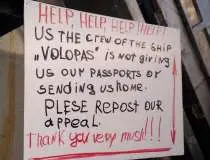 HELP, HELP, HELP, HELP!
US THE CREW OF THE SHIP
„VOLOPAS" IS NOT GIVING
US OUR PASSPORTS OR
SENDING US HOME.
PLESE REPOST OUR
APPEAL.
THANK YOU VERY MUSH!!!